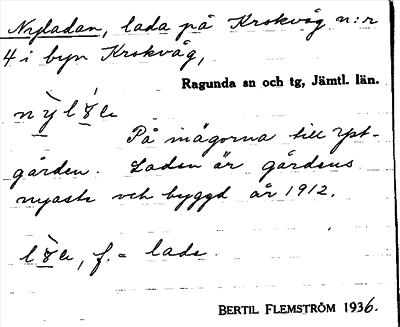 Nyladan, lada på Krokvåg n:r
4 i byn Krokvåg,
Ragunda sn och tg, Jämtl. län.
På mågorna till
gården. Ladan är gårdens
nyaste och byggd år 1912.
f. = lada.
BERTIL FLEMSTRÖM 1936.